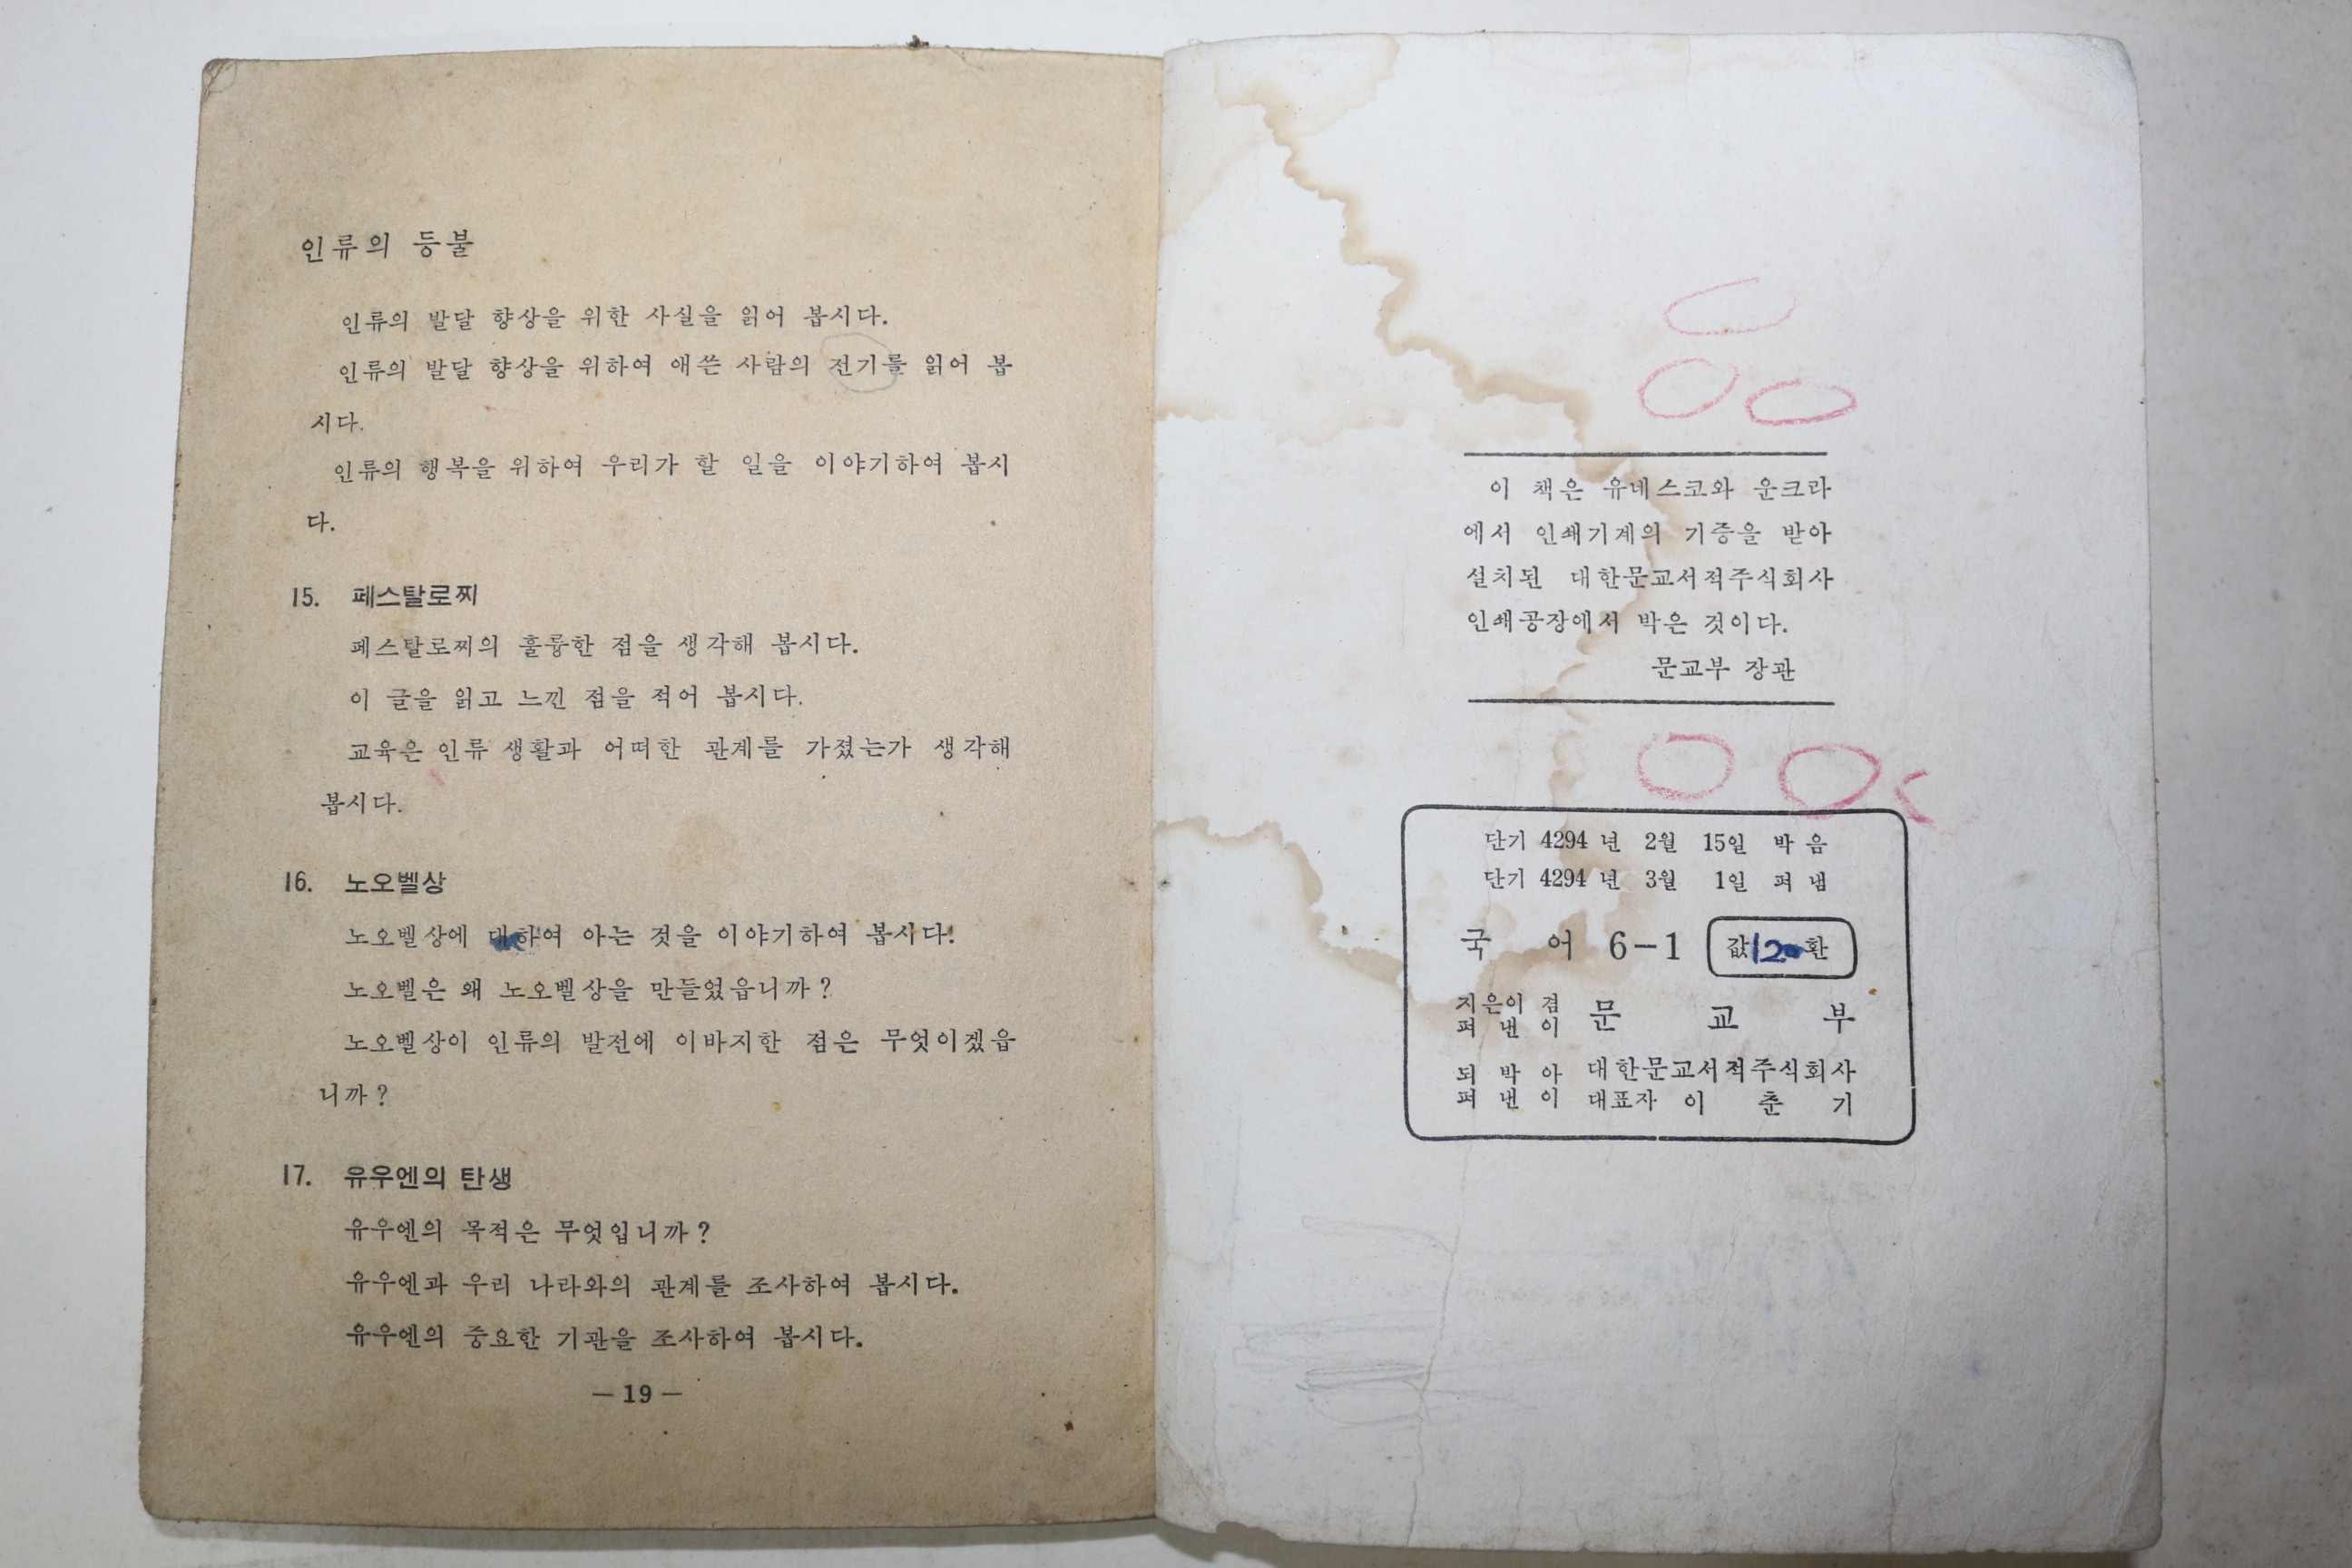 인류의 등불
인류의 발달 향상을 위한 사실을 읽어 봅시다.
인류의 발달 향상을 위하여 애쓴 사람의 전기를 읽어 봅
시다.
인류의 행복을 위하여 우리가 할 일을 이야기하여 봅시
다.
15. 페스탈로찌
페스탈로찌의 훌륭한 점을 생각해 봅시다.
이 글을 읽고 느낀 점을 적어 봅시다.
교육은 인류 생활과 어떠한 관계를 가졌는가 생각해
봅시다.
16. 노오벨상
노오벨상에 대하여 아는 것을 이야기하여 봅시다.
노오벨은 왜 노오벨상을 만들었읍니까?
노오벨상이 인류의 발전에 이바지한 점은 무엇이겠읍
니까?
17. 유우엔의 탄생
유우엔의 목적은 무엇입니까?
유우엔과 우리 나라와의 관계를 조사하여 봅시다.
유우엔의 중요한 기관을 조사하여 봅시다.
— 19 —
이 책은 유네스코와 운크라
에서 인쇄기계의 기증을 받아
설치된 대한문교서적주식회사
인쇄공장에서 박은 것이다.
문교부 장관
단기 4294 년 2월 15일 박음
단기 4294 년 3월 1일 펴냄
국 어 6-1 값 120 환
지은이 겸
펴 낸 이 문 교 부
되 박 아 대한문교서적주식회사
펴 낸 이 대표자 이 춘 기